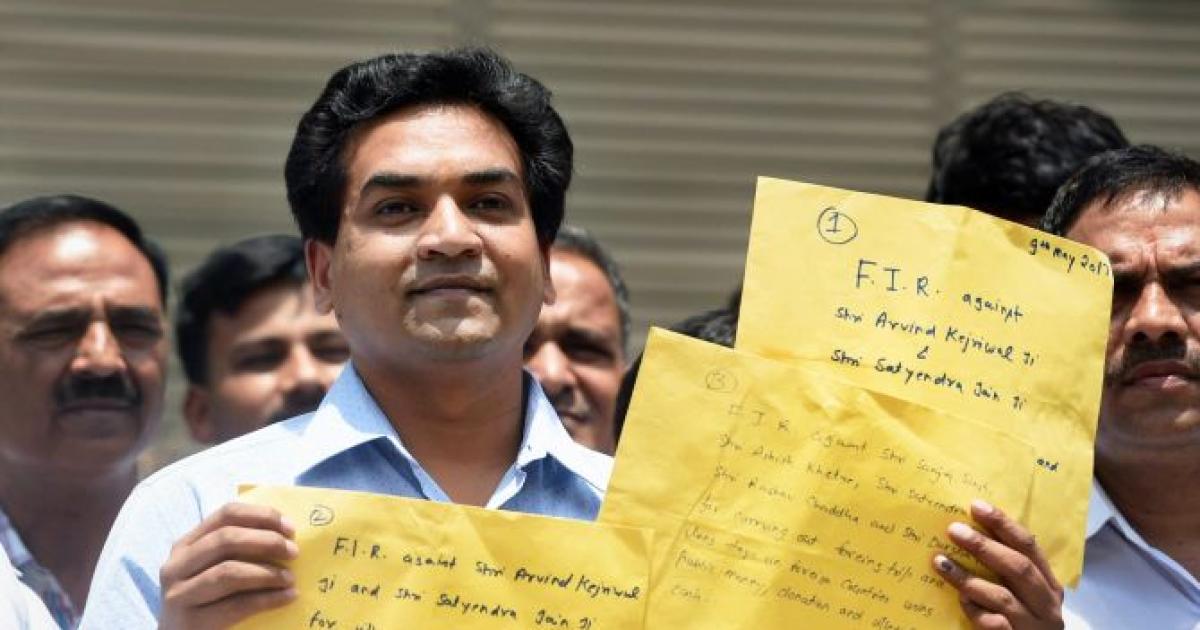 ①
9th May 2017
F.I.R. against
Shri Arvind Kejriwal Ji
&
Shri Satyendra Jain Ji
and
③
F.I.R against Shri Sanjay Singh,
Shri Ashish Khetan, Shri Satyendra
Shri Raghav Chaddha and Shri
for carrying out foreing trips and
foreign Countries using
Public money, donation and
Cash.
②
F.I.R. against Shri Arvind Kejriwal
Ji and Shri Satyendra Jain Ji
for